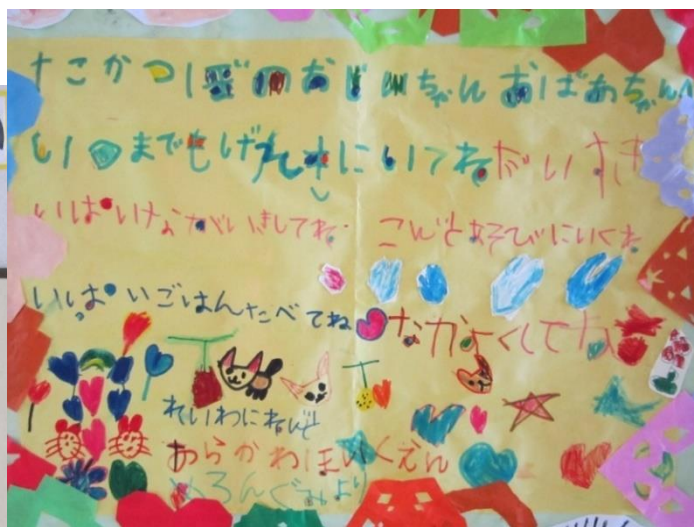 たこかつぼのおじいちゃんおばあちゃんへ
いつまでもげんきにいてねだいすき
いぱいながいきしてね こんどあそびにいくね
いっぱいごはんたべてね なかよくしてね
れいわにねんど
あらかわほいくえん
めろんぐみより